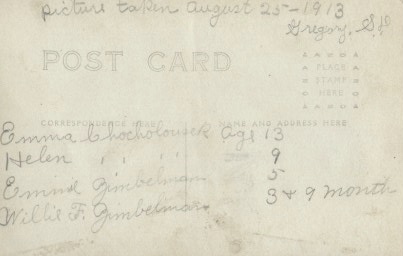 picture taken August 25-1913
Gregory, S.D
POST CARD
PLACE
STAMP
HERE
CORRESPONDENCE HERE
NAME AND ADDRESS HERE
Emma Chocholousek Age 13
Helen " " 9
Emmil Zimbelman 5
Willie F. Zimbelman 3 & 9 month